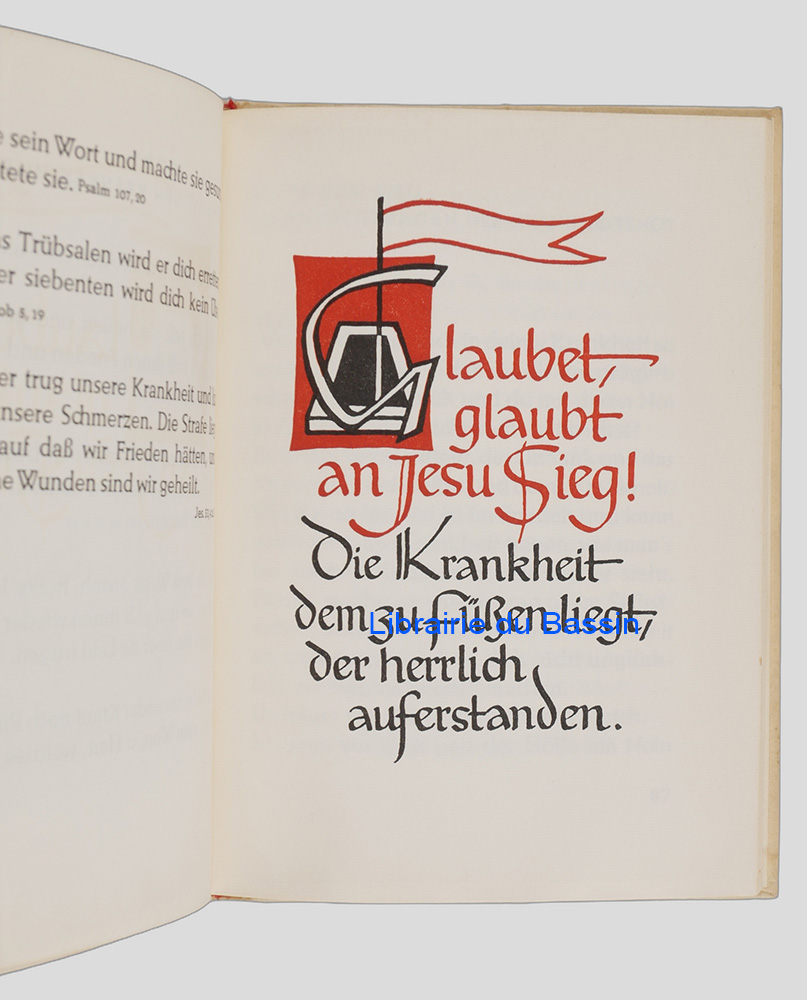 sein Wort und machte sie
tete sie. Psalm 107, 20
Trübsalen wird er dich
siebenten wird dich kein
5, 19
er trug unsere Krankheit und
nsere Schmerzen. Die Strafe
auf daß wir Frieden hätten,
Wunden sind wir geheilt.
Jes. 53,
Glaubet,
glaubt
an Jesu Sieg!
Die Krankheit
dem zu Füßen liegt,
Librairie du Bassin
der herrlich
auferstanden.